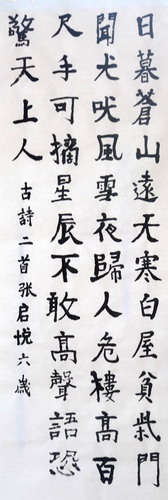 日暮蒼山遠天寒白屋貧柴門
聞犬吠風雪夜歸人危樓高百
尺手可摘星辰不敢高聲語恐
驚天上人
古詩二首张启悦六歲